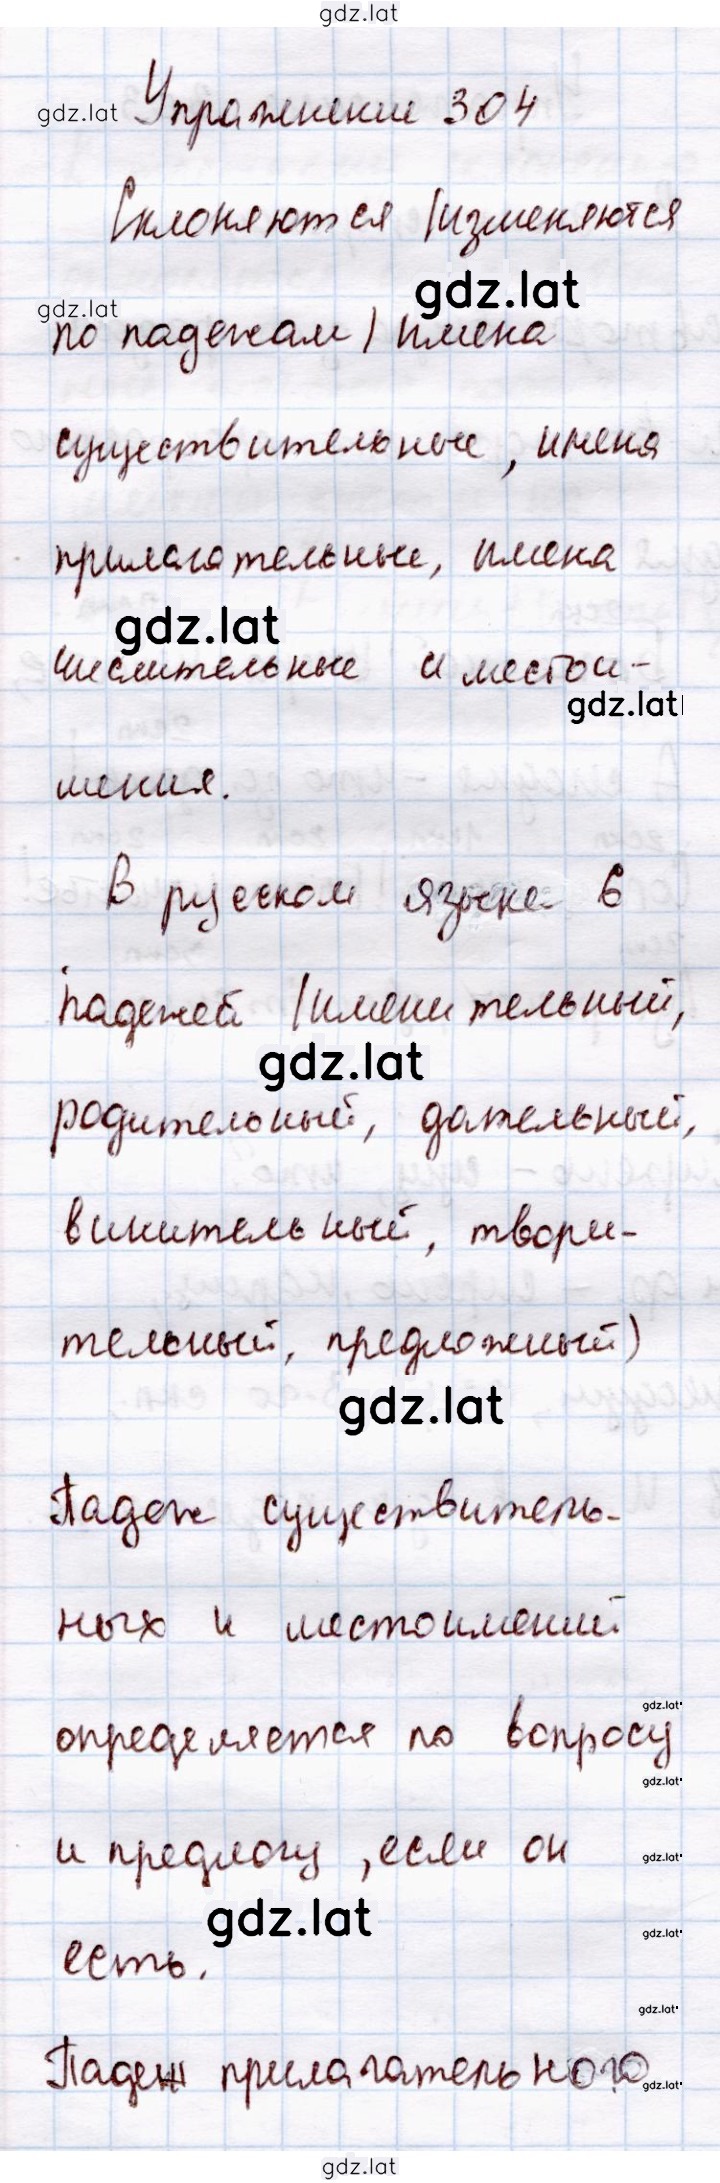 gdz.lat
gdz.lat Упражнение 304
Склоняются (изменяются
gdz.lat gdz.lat
по падежам) имена
существительные, имена
прилагательные, имена
gdz.lat
числительные и местои-
gdz.lat
мения.
В русском языке 6
падежей (именительный,
gdz.lat
родительный, дательный,
винительный, твори-
тельный, предложный)
gdz.lat
Падеж существитель-
ных и местоимений
gdz.lat
определяется по вопросу
gdz.lat
и предлогу, если он
gdz.lat
gdz.lat
gdz.lat
есть.
gdz.lat
Падеж прилагательного
gdz.lat
gdz.lat